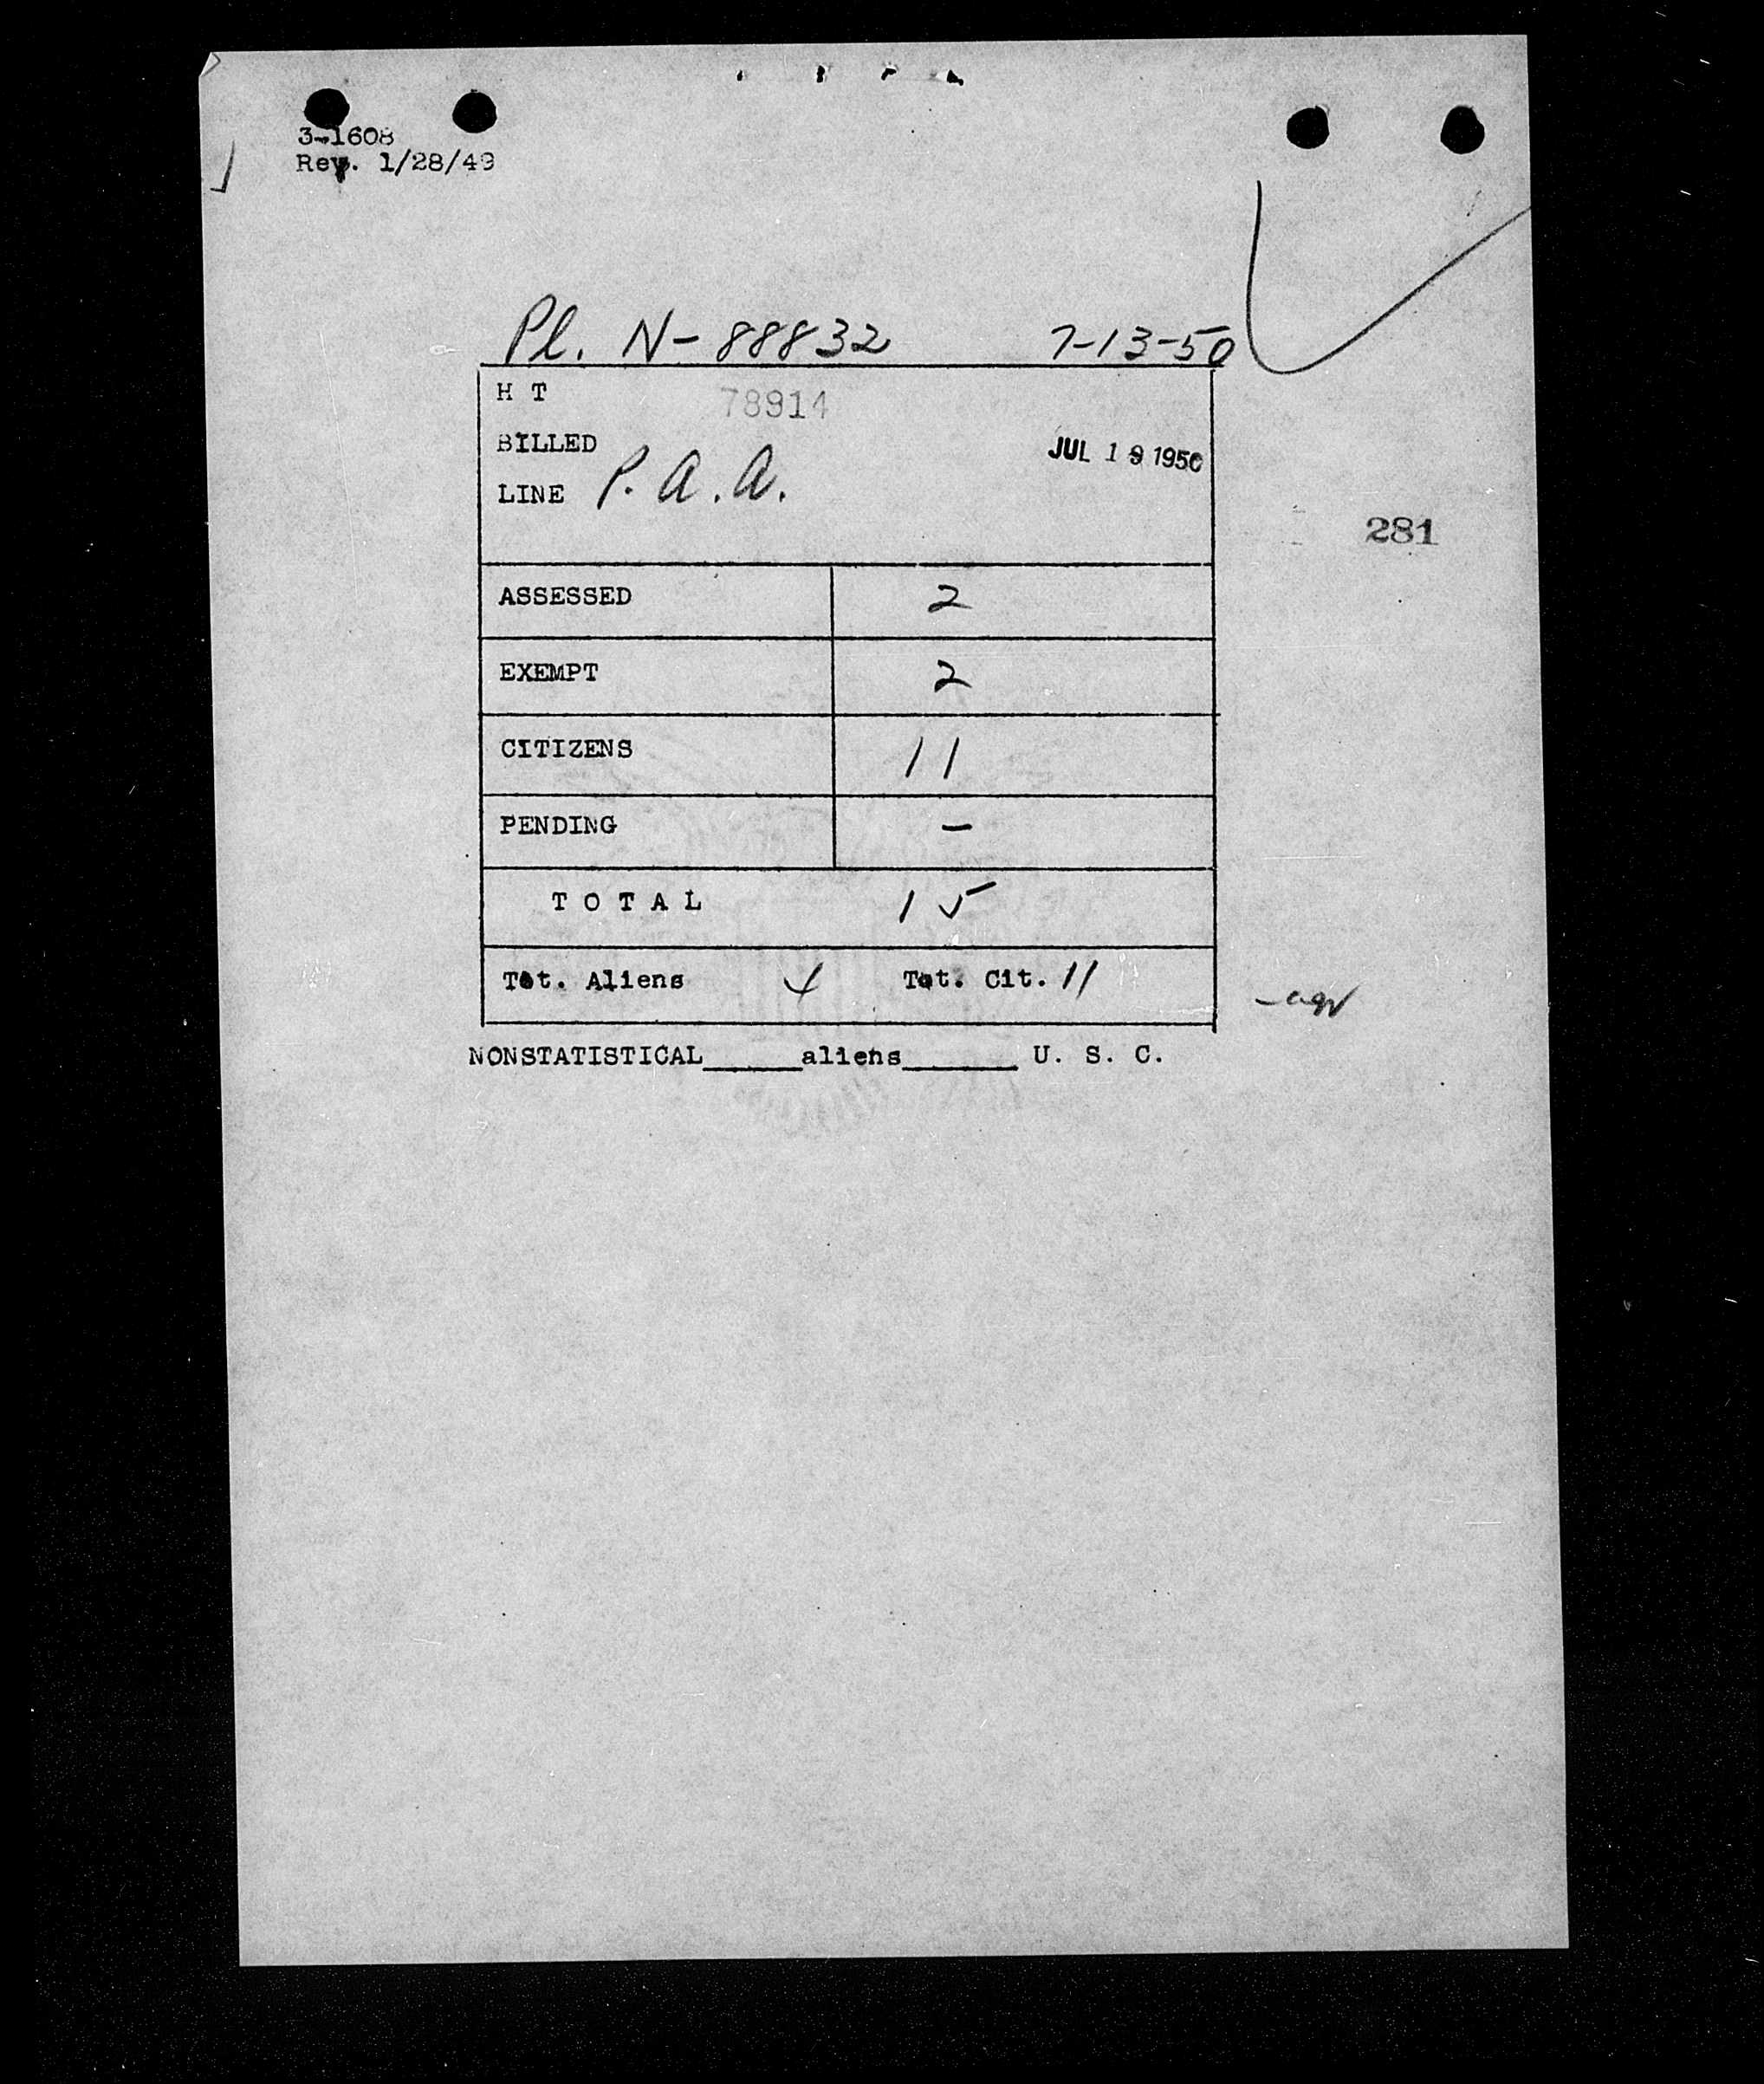 3-1608
Rev. 1/28/49
Pl. N-88832 7-13-50
H T 78914
BILLED
JUL 19 1950
LINE P.A.A.
281
ASSESSED 2
EXEMPT 2
CITIZENS 11
PENDING –
TOTAL 15
Tot. Aliens 4 Tot. Cit. 11
NONSTATISTICAL______aliens______ U. S. C.